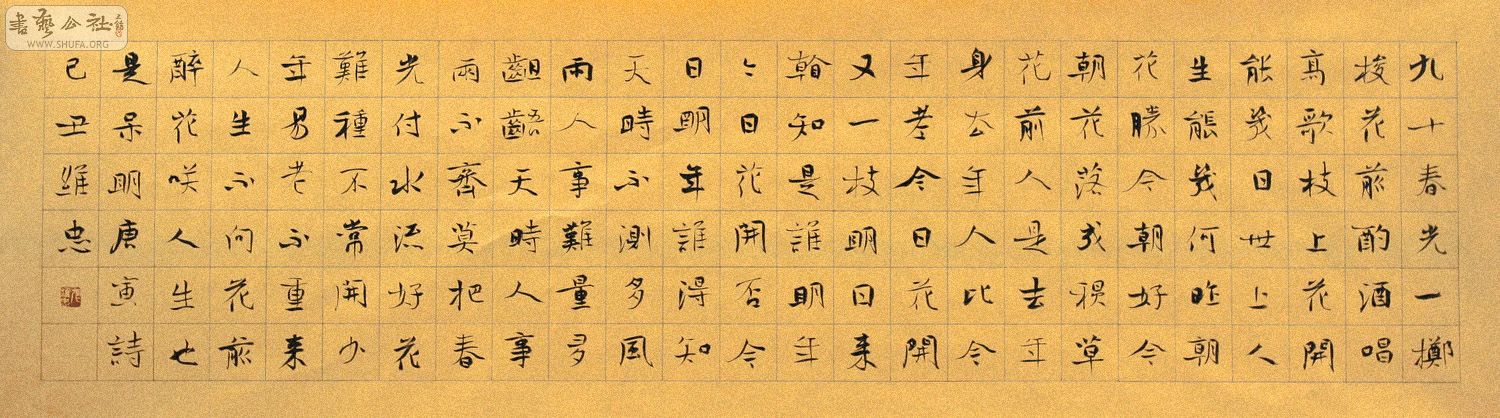 九十春光一擲
梭花前酌酒唱
高歌枝上花開
能幾日世上人
生能幾何昨朝
花勝今朝好今
朝花落成秽草
花前人是去年
身去年人比今
年老今日花開
又一枝明日来
看知是誰明年
今日花開否今
日明年誰得知
天時不測多風
雨人事難量多
齟齬天時人事
兩不齊莫把春
光付水流好花
難種不常開少
年易老不重来
人生不向花前
醉花咲人生也
是呆明唐寅詩
己丑維忠
書藝公社
WWW.SHUFA.ORG